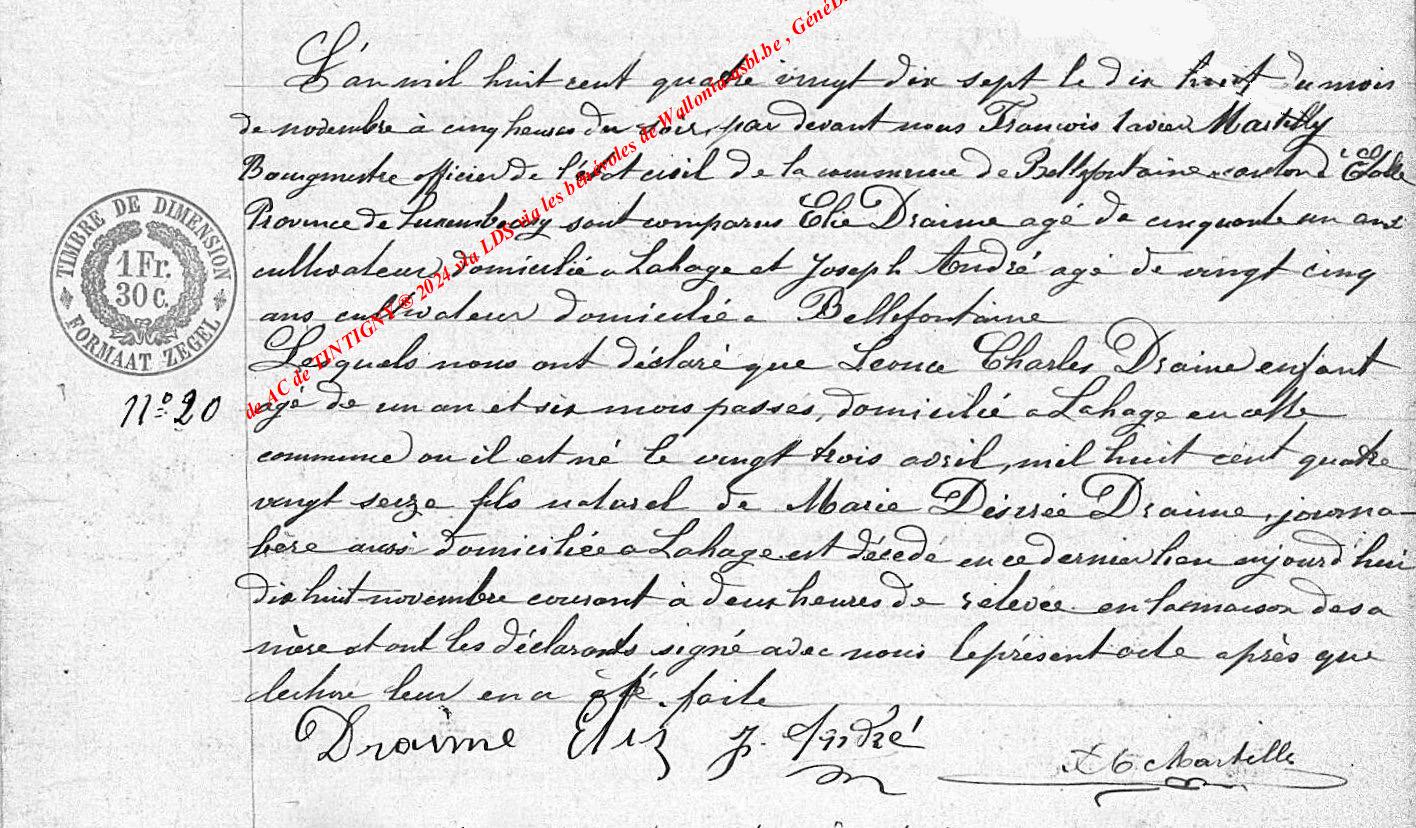 L'an mil huit cent quatre vingt dix sept le dix huit du mois
de novembre à cinq heures du soir, par devant nous Francois Xavier Martilly
Bourgmestre officier de l'état civil de la commune de Bellefontaine canton d'Etalle
Province de Luxembourg sont comparus Elie Draime agé de cinquante un ans
cultivateur, domicilié a Lahage et Joseph André agé de vingt cinq
ans cultivateur domicilié a Bellefontaine
Lesquels nous ont déclaré que Leonce Charles Draime enfant
agé de un an et six mois passés, domicilié a Lahage en cette
commune ou il est né le vingt trois avril, mil huit cent quatre
vingt seize fils naturel de Marie Désirée Draime, journa-
lière aussi domiciliée a Lahage est décédé en ce dernier lieu aujourd'hui
dix huit novembre courant à deux heures de relevée en la maison de sa
mère et ont les déclarants signé avec nous le présent acte après que
lecture leur en a été faite
Draime Elie J. André
Martilly
N° 20
TIMBRE DE DIMENSION
1 Fr.
30 C.
FORMAAT ZEGEL
de AC de TINTIGNY ® 2024 via LDS via les bénévoles de Wallonia asbl.be , GénéD